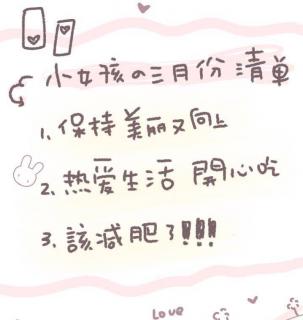 小女孩の三月份清單
1. 保持美丽又向上
2. 热爱生活 開心吃
3. 該減肥了!!!!
Love